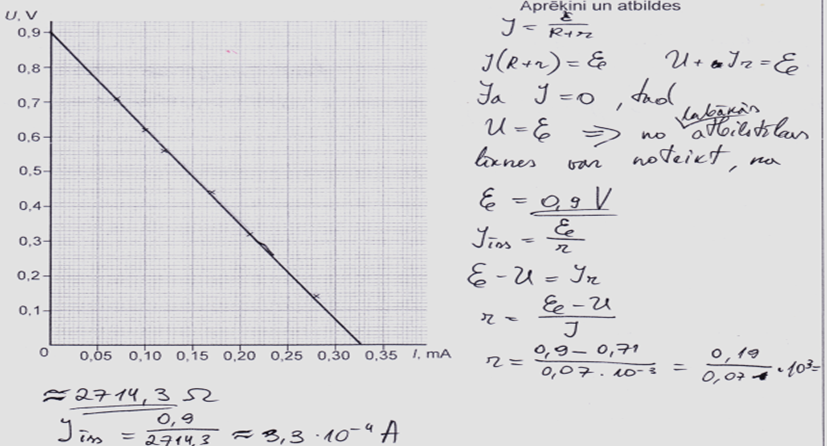 U, V
0,9
0,8
0,7
0,6
0,5
0,4
0,3
0,2
0,1
0 0,05 0,10 0,15 0,20 0,25 0,30 0,35 I, mA
Aprēķini un atbildes
J = ℰ/(R+r)
J(R+r) = ℰ U + Jr = ℰ
Ja J = 0, tad
labākās
U = ℰ ⇒ no atbilstības
līknes var noteikt, ka
ℰ = 0,9 V
Jīss = ℰ/r
ℰ - U = Jr
r = (ℰ - U)/J
r = (0,9 - 0,71)/(0,07 · 10⁻³) = 0,19/0,07 · 10³ =
≈ 2714,3 Ω
Jīss = 0,9/2714,3 ≈ 3,3 · 10⁻⁴ A